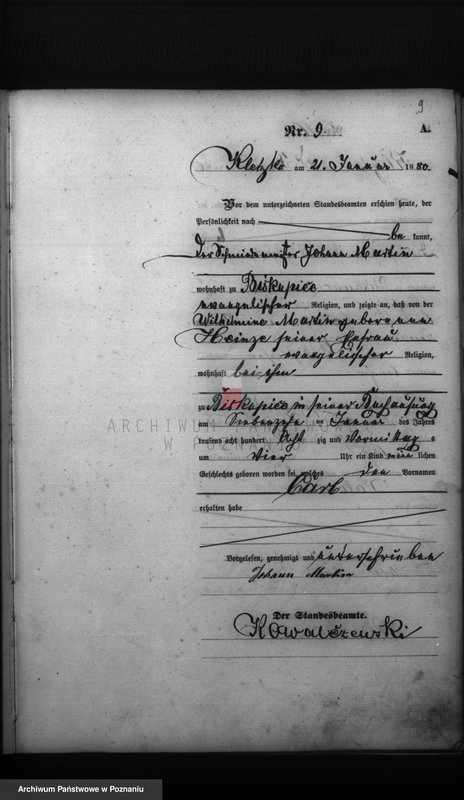 9
Nr. 9.
A.
Kletzko am 21. Januar 1880.
Vor dem unterzeichneten Standesbeamten erschien heute, der
Persönlichkeit nach
be kannt,
der Schmiedemeister Johann Martin
wohnhaft zu Biskupiec
evangelischer Religion, und zeigte an, daß von der
Wilhelmine Martin geborenen
Heinze seiner Ehefrau
evangelischer Religion,
wohnhaft bei ihm
zu Biskupiec in seiner Behausung
am Siebenzehn ten Januar des Jahres
tausend acht hundert Acht zig und Vormittag s
um Vier Uhr ein Kind männ lichen
Geschlechts geboren worden sei, welches den Vornamen
Carl
erhalten habe
Vorgelesen, genehmigt und unterschrieben
Johann Martin
Der Standesbeamte.
Kowalczewski
ARCHIWUM PAŃSTWOWE
W POZNANIU
Archiwum Państwowe w Poznaniu